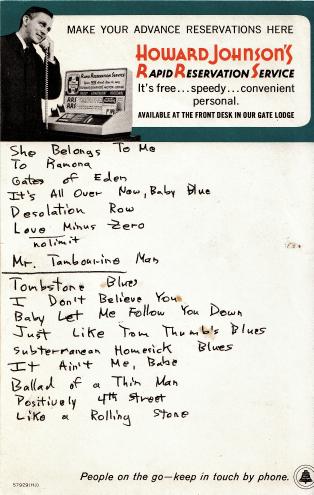 MAKE YOUR ADVANCE RESERVATIONS HERE
HOWARD JOHNSON'S
RAPID RESERVATION SERVICE
It's free...speedy...convenient
personal.
AVAILABLE AT THE FRONT DESK IN OUR GATE LODGE
RAPID RESERVATION SERVICE
She Belongs To Me
To Ramona
Gates of Eden
It's All Over Now, Baby Blue
Desolation Row
Love Minus Zero
no limit
Mr. Tambourine Man
Tombstone Blues
I Don't Believe You
Baby Let Me Follow You Down
Just Like Tom Thumb's Blues
Subterranean Homesick Blues
It Ain't Me, Babe
Ballad of a Thin Man
Positively 4th Street
Like a Rolling Stone
People on the go—keep in touch by phone.
57929(HJ)